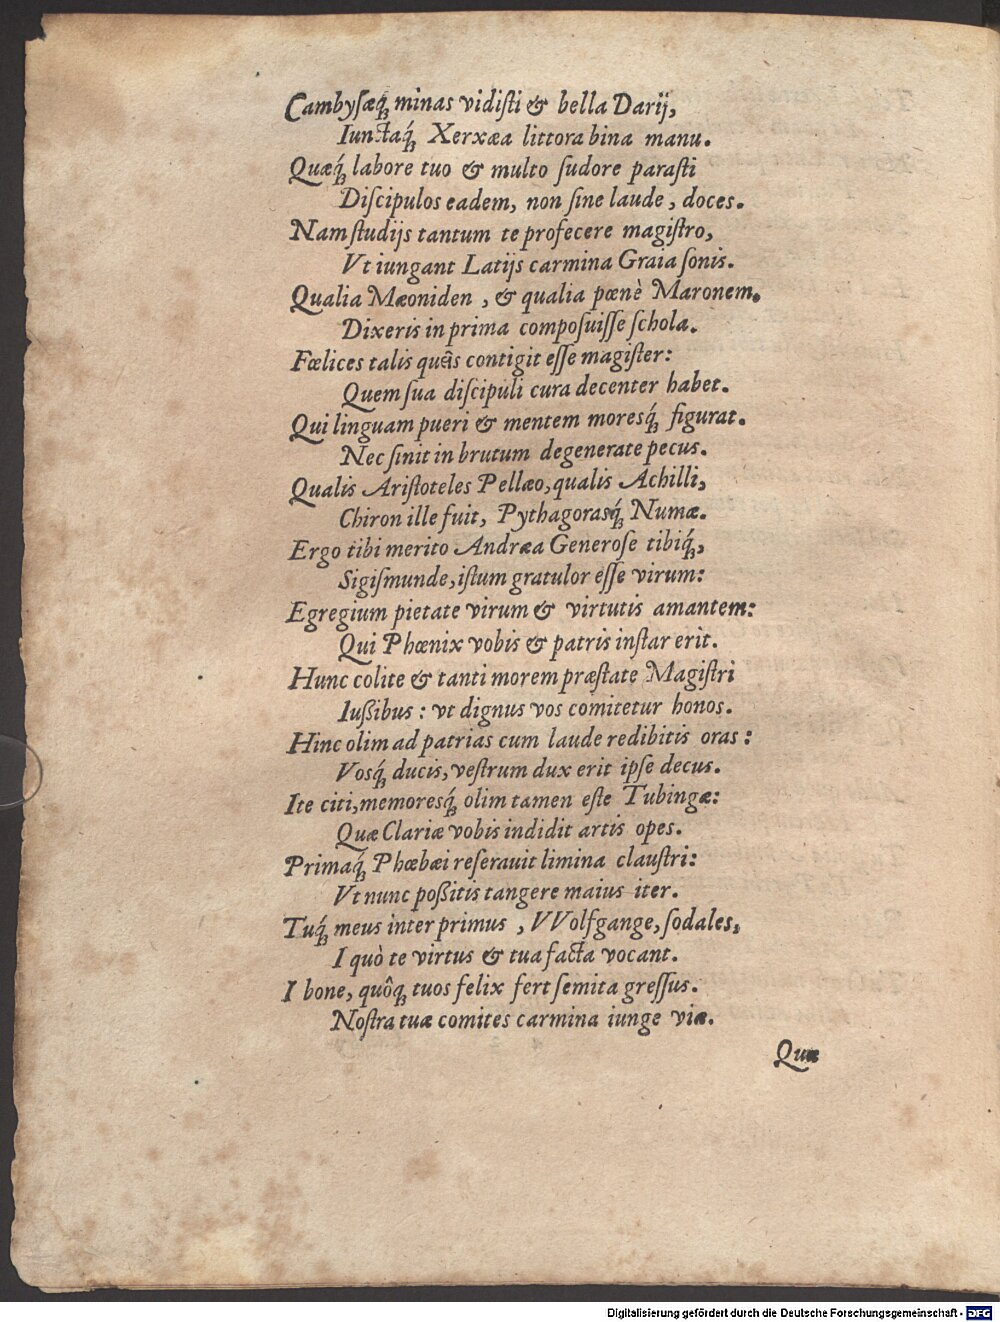 Cambyſæq́ꝫ minas vidiſti & bella Darij,
Iunctaq́ꝫ Xerxæa littora bina manu.
Quæq́ꝫ labore tuo & multo ſudore paraſti
Diſcipulos eadem, non ſine laude, doces.
Nam ſtudijs tantum te profecere magiſtro,
Vt iungant Latijs carmina Graia ſonis.
Qualia Mæoniden, & qualia pœnè Maronem.
Dixeris in prima compoſuiſſe ſchola.
Fœlices talis queîs contigit eſſe magiſter:
Quem ſua diſcipuli cura decenter habet.
Qui linguam pueri & mentem moresq́ꝫ figurat.
Nec ſinit in brutum degenerate pecus.
Qualis Ariſtoteles Pellæo, qualis Achilli,
Chiron ille fuit, Pythagorasq́ꝫ Numæ.
Ergo tibi merito Andræa Generoſe tibiq́ꝫ,
Sigiſmunde, iſtum gratulor eſſe virum:
Egregium pietate virum & virtutis amantem:
Qui Phœnix vobis & patris inſtar erit.
Hunc colite & tanti morem præſtate Magiſtri
Iußibus: vt dignus vos comitetur honos.
Hinc olim ad patrias cum laude redibitis oras:
Vosq́ꝫ ducis, veſtrum dux erit ipſe decus.
Ite citi, memoresq́ꝫ olim tamen eſte Tubingæ:
Quæ Clariæ vobis indidit artis opes.
Primaq́ꝫ Phœbæi reſerauit limina clauſtri:
Vt nunc poßitis tangere maius iter.
Tuq́ꝫ meus inter primus, VVolfgange, ſodales,
I quò te virtus & tua facta vocant.
I bone, quôqꝫ tuos felix fert ſemita greſſus.
Noſtra tuæ comites carmina iunge viæ.
Quæ
Digitalisierung gefördert durch die Deutsche Forschungsgemeinschaft - DFG